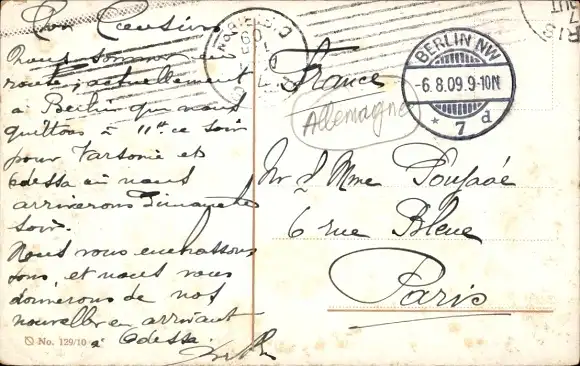 Nous sommes en
route, actuellement
à Berlin que nous
quittons à 11h ce soir
pour Varsovie et
Odessa où nous
arriverons Dimanche
soir.
Nous vous embrassons
tous, et nous vous
donnerons de nos
nouvelles en arrivant
à Odessa.
No. 129/10
France
Allemagne
BERLIN NW
-6.8.09.9-10N
* 7 d
Mr & Mme
6 rue Bleue
Paris